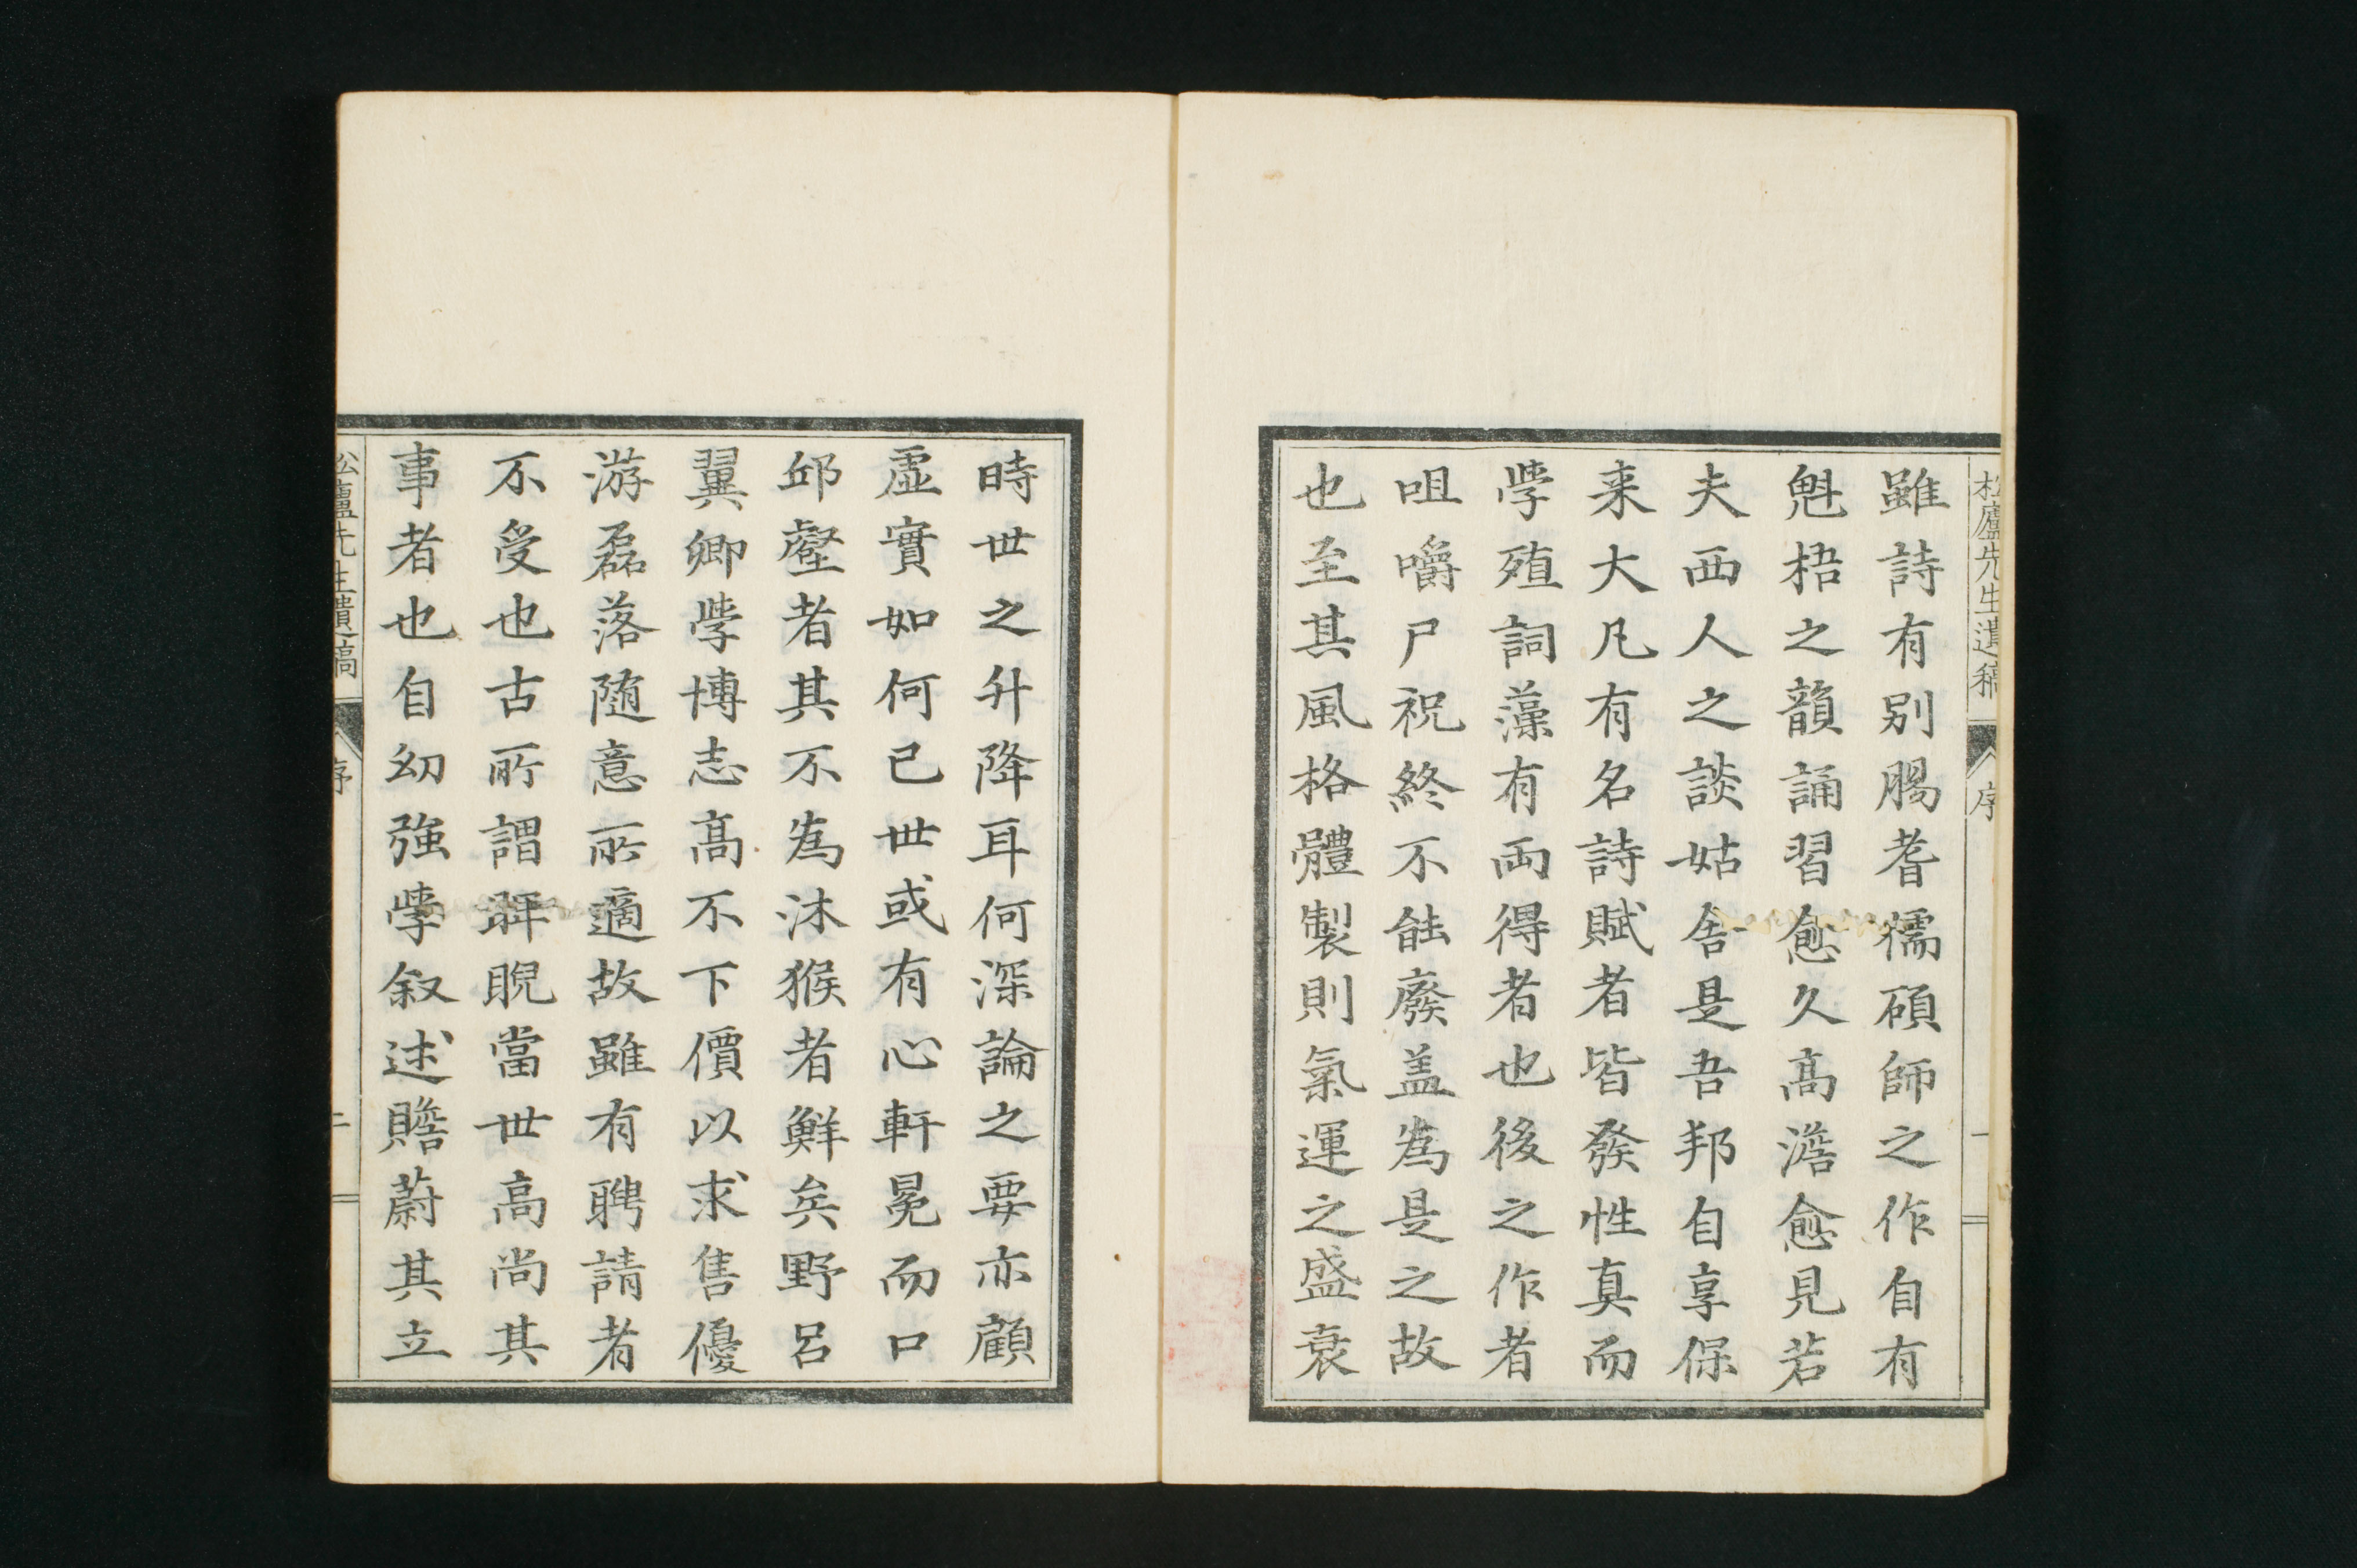 松廬先生遺稿 序 一
雖詩有別腸耆儒碩師之作自有
魁梧之韻誦習愈久高澹愈見若
夫西人之談姑舎是吾邦自享保
来大凡有名詩賦者皆發性真而
學殖詞藻有両得者也後之作者
咀嚼尸祝終不能廢盖為是之故
也至其風格體製則氣運之盛衰
時世之升降耳何深論之要亦顧
虛實如何已世或有心軒冕而口
邱壑者其不為沐猴者鮮矣野呂
翼卿學博志高不下價以求售優
游磊落随意所適故雖有聘請者
不受也古所謂睥睨當世高尚其
事者也自幼強學叙述贍蔚其立
松廬先生遺稿 序 二